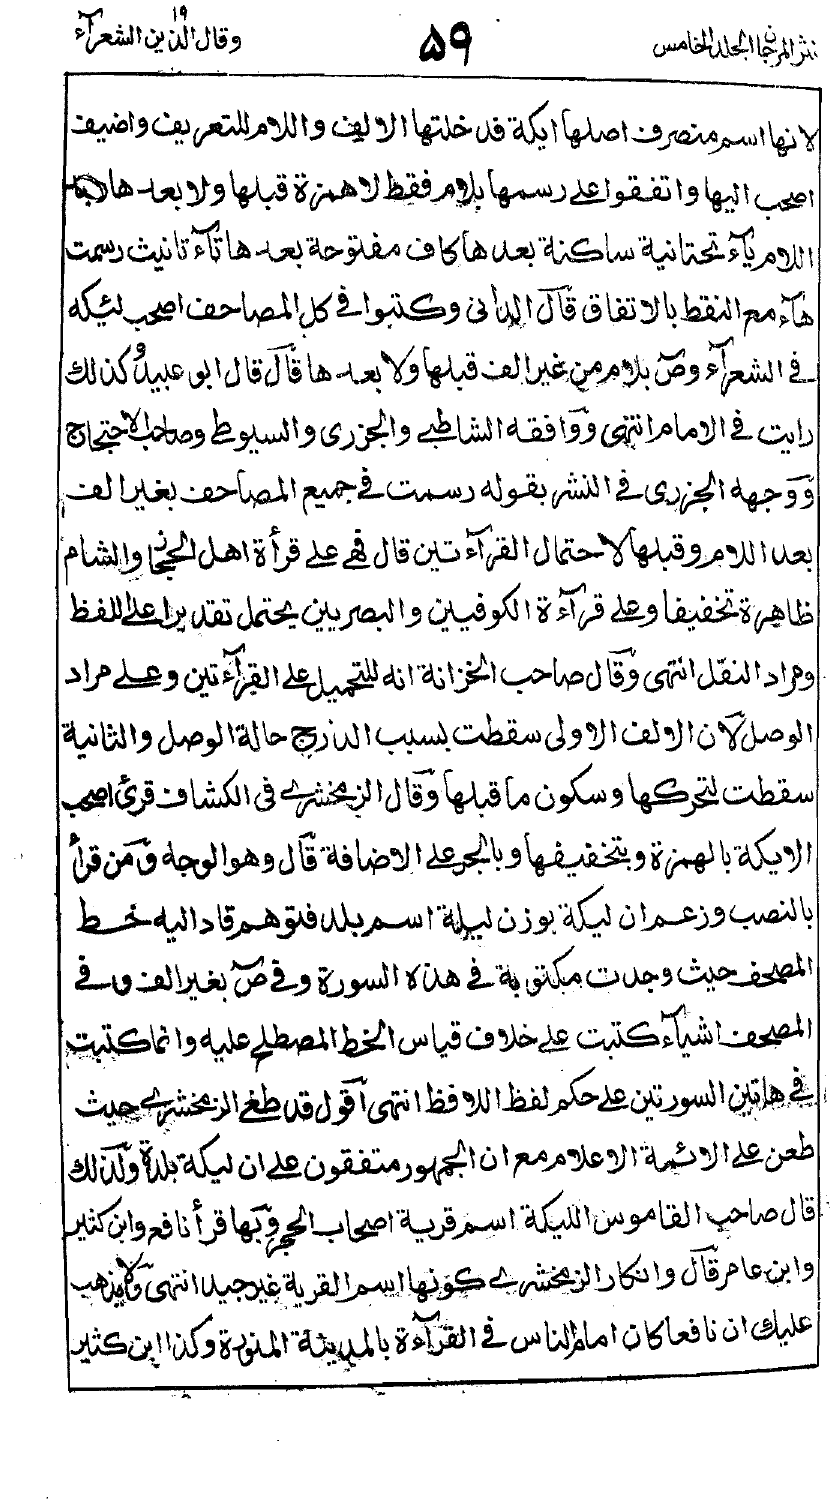 نثر المرجان الجلد الخامس
۵۹
وقال الذين ١٩ الشعرآء
لانها اسم منصرف اصلها ايكة قد خلتها الالف واللام للتعريف واضيف
اصحب اليها واتفقوا على رسمها بلام فقط لاهمزة قبلها ولا بعدها
اللام يآء تحتانية ساكنة بعدها كاف مفتوحة بعدها تآء تانيث رسمت
هآء مع النقط بالاتفاق قآل الدانى وكتبوا فى كل المصاحف اصحب لئيكه
فى الشعرآء وصٓ بلام من غير الف قبلها ولا بعدها قآل قال ابو عبيد وكذلك
رايت فى الامام انتهى ووافقه الشاطبى والجزرى والسيوطى وصاحب الاحتجاج
ووجهه الجزرى فى النشر بقوله رسمت فى جميع المصاحف بغير الف
بعد اللام وقبلها لاحتمال القرآءتين قال فهى على قرأة اهل الحجاز والشام
ظاهرة تخفيفا وعلى قرآءة الكوفيين والبصريين يحتمل تقديرا على اللفظ
ومراد النقل انتهى وقآل صاحب الخزانة انه للتحميل على القرآءتين وعلى مراد
الوصل لآن الالف الاولى سقطت بسبب الدرج حالة الوصل والثانية
سقطت لتحركها وسكون ما قبلها وقآل الزمخشرى فى الكشاف قرئ اصحب
الايكة بالهمزة وبتخفيفها وبالجر على الاضافة قآل وهو الوجه ومن قرأ
بالنصب وزعم ان ليكة بوزن ليلة اسم بلد فتوهم قاد اليه خط
المصحف حيث وجدت مكتوبة فى هذه السورة وفى صٓ بغير الف وفى
المصحف اشيآء كتبت على خلاف قياس الخط المصطلح عليه وانما كتبت
فى هاتين السورتين على حكم لفظ اللافظ انتهى آقول قد طغى الزمخشرى حيث
طعن على الائمة الاعلام مع ان الجمهور متفقون على ان ليكة بلدة ولذلك
قال صاحب القاموس الليكة اسم قرية اصحاب الحجر وبها قرأ نافع وابن كثير
وابن عامر قآل وانكار الزمخشرى كونها اسم القرية غير جيد انتهى ولا يذهب
عليك ان نافعا كان امام الناس فى القرآءة بالمدينة المنورة وكذا ابن كثير